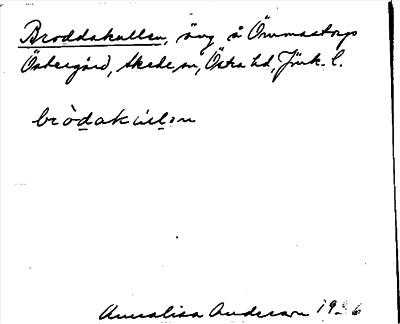 Broddakullen, äng å Ömmaetorps
Östergård, Skede sn, Östra hd, Jönk. l.
bròdakulən
Annalisa Anderson 19